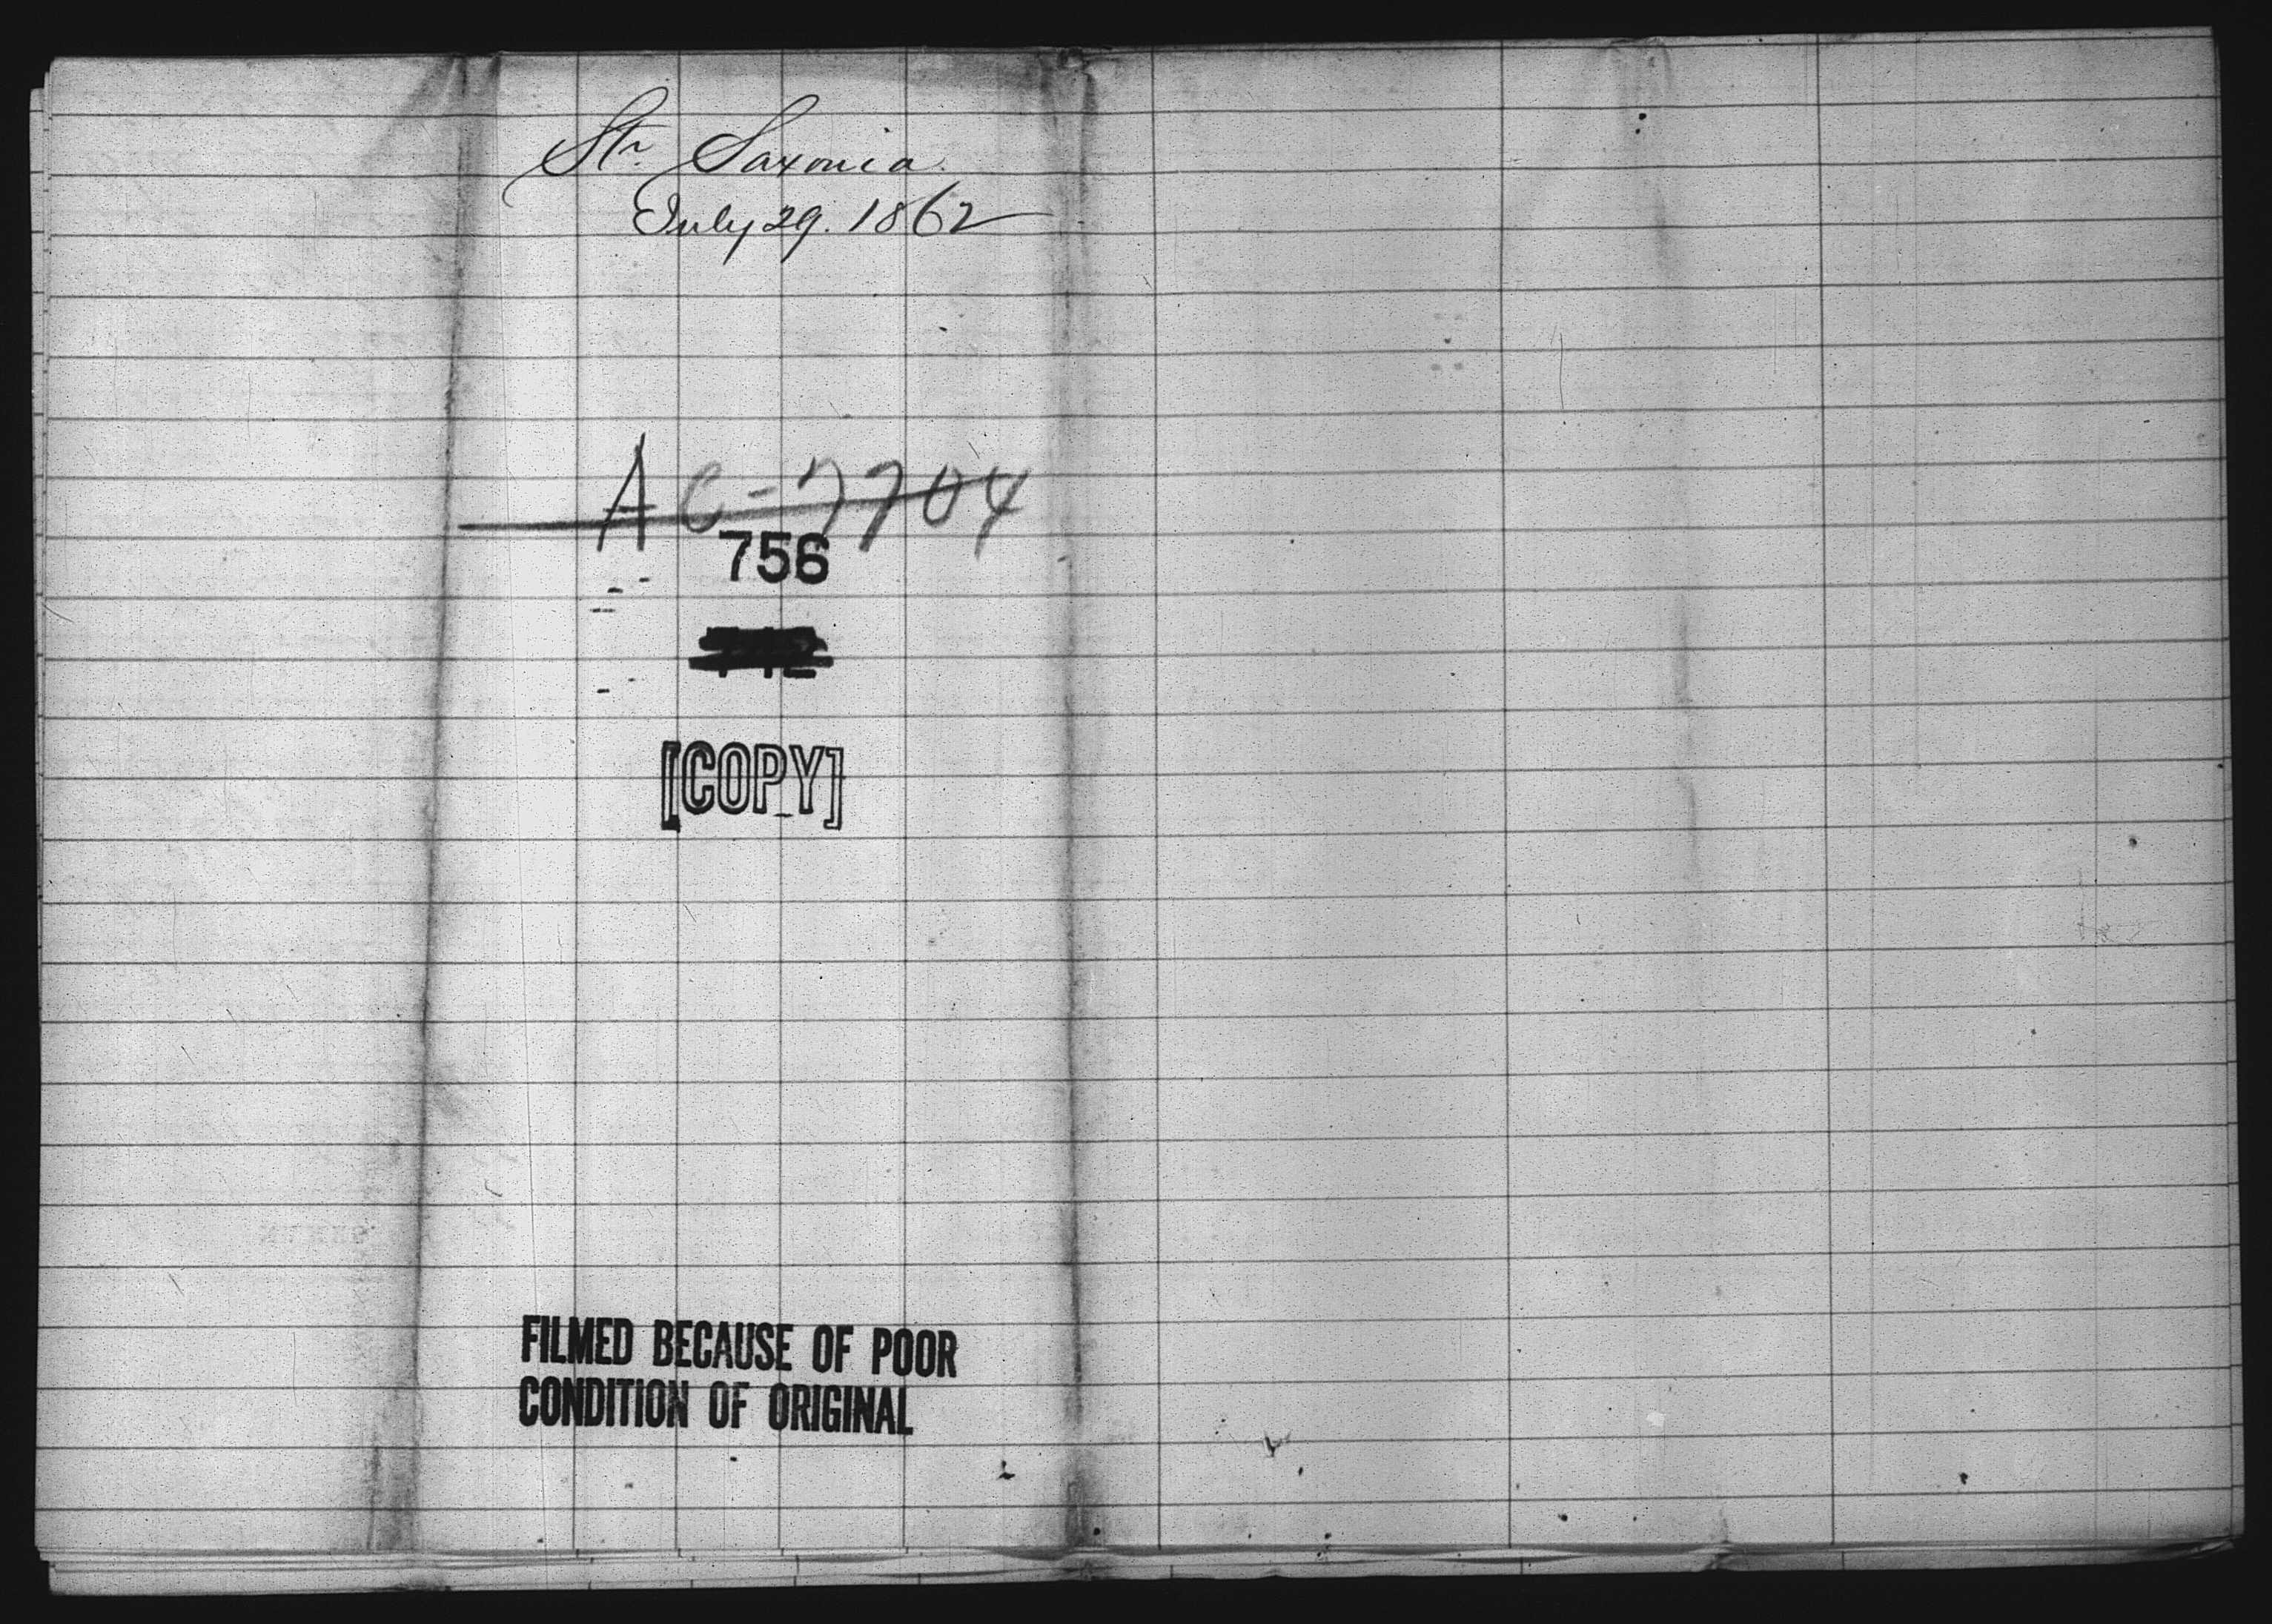 Str. Saxonia.
July 29. 1862
AC-7704
756
[COPY]
FILMED BECAUSE OF POOR
CONDITION OF ORIGINAL